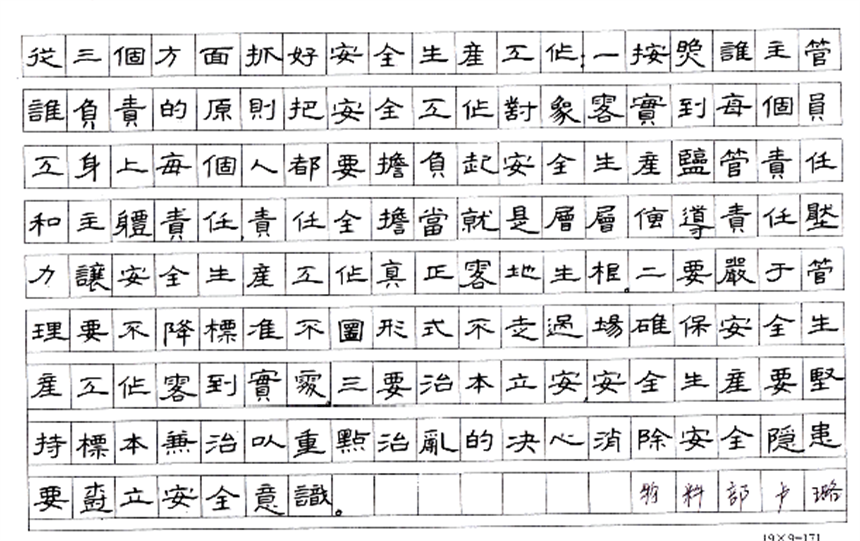 從三個方面抓好安全生産工作;一按照誰主管
誰負責的原則把安全工作對象落實到每個員
工身上每個人都要擔負起安全生産監管責任
和主體責任,責任全擔當就是層層傳導責任壓
力讓安全生産工作真正落地生根。二要嚴于管
理要不降標准不圖形式不走過場確保安全生
産工作落到實處.三要治本立安,安全生産要堅
持標本兼治以重點治亂的决心消除安全隱患
要樹立安全意識。 物料部卡璐
19×9=171